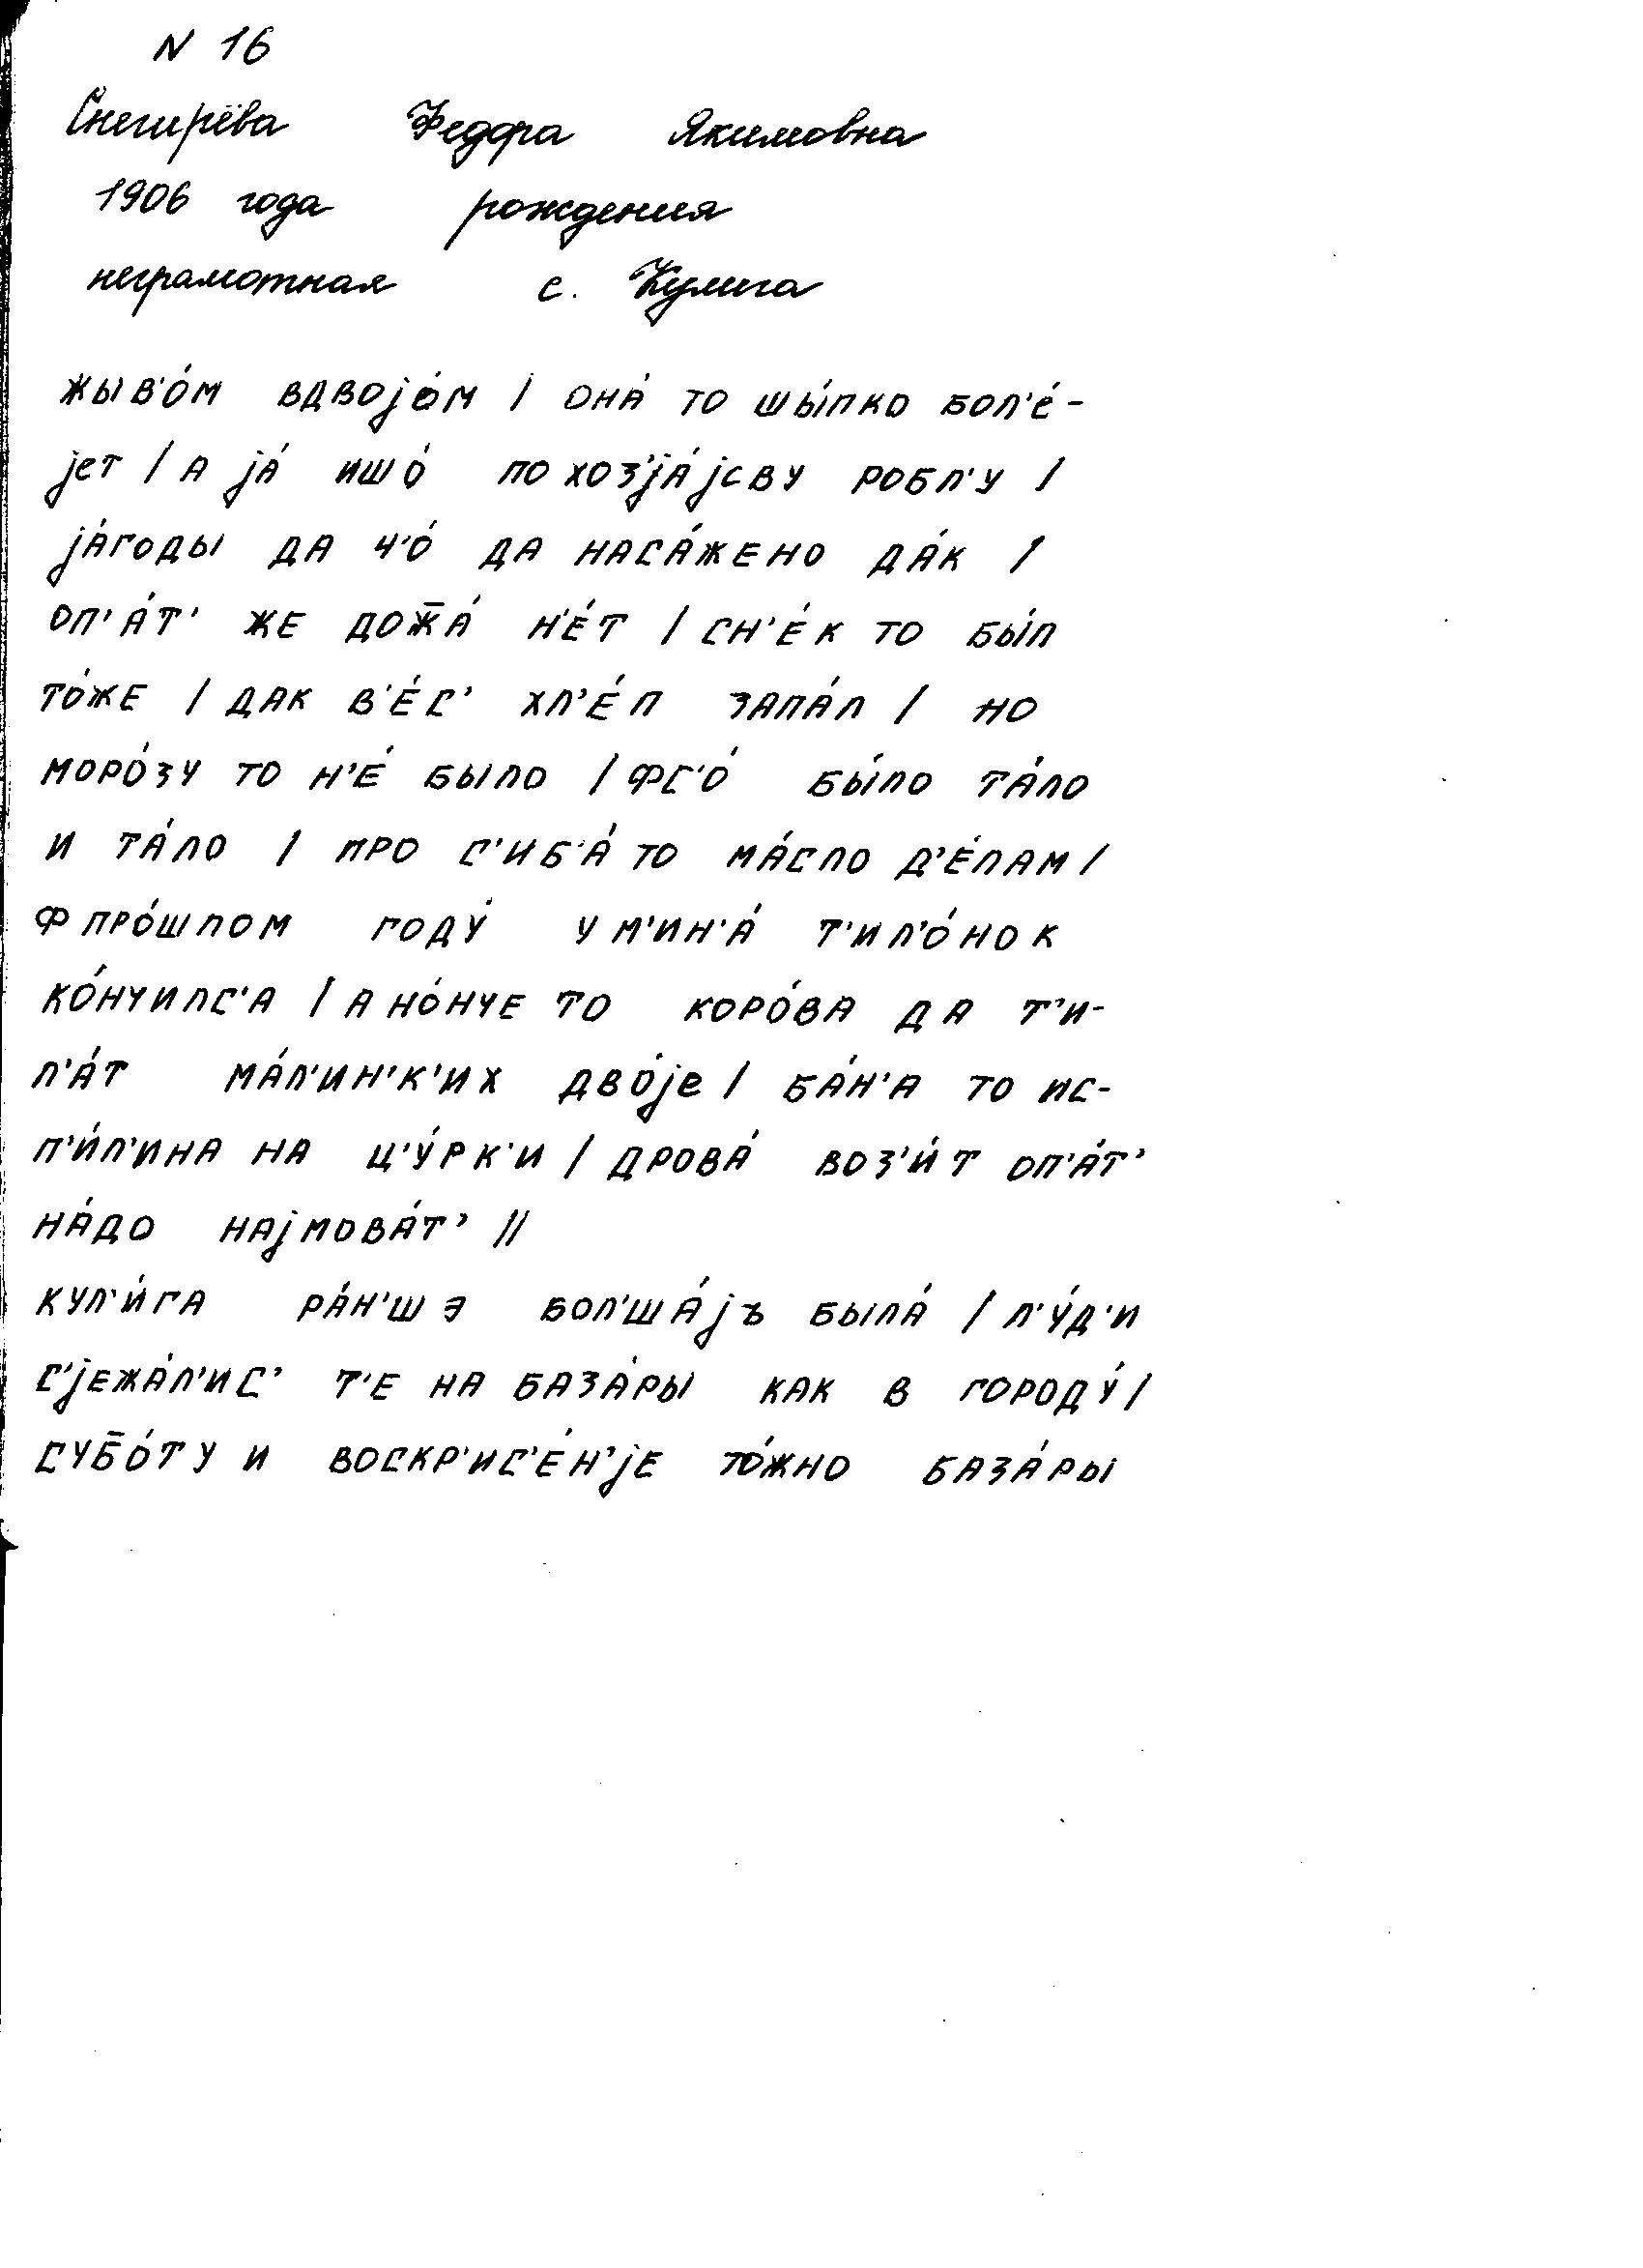 N 16
Снегирёва Федора Якимовна
1906 года рождения
неграмотная с. Кулига
жыв'о́м вдвоjо́м / она́ то шы́пко бол'е́-
jет / а jа́ ишо́ по хоз'jа́jсву робл'у /
jа́годы да ч'о́ да наса́жено да́к /
оп'а́т' же дож̄а́ н'е́т / сн'е́к то бы́л
то́же / дак в'е́с' хл'е́п запа́л / но
моро́зу то н'е́ было / фс'о́ бы́ло та́ло
и та́ло / про с'иб'а́ то ма́сло д'е́лам /
ф про́шлом году́ у м'ин'а́ т'ил'о́нок
ко́нчилс'а / а но́нче то коро́ва да т'и-
л'а́т ма́л'ин'к'их дво́jе / ба́н'а то ис-
п'и́л'ина на ц'у́рк'и / дрова́ воз'и́т оп'а́т'
на́до наjмова́т' //
кул'и́га ра́н'шэ бол'ша́jъ была́ / л'у́д'и
с'jежа́л'ис' т'е на база́ры как в городу́ /
суб̄о́ту и воскр'ис'е́н'jе то́жно база́ры